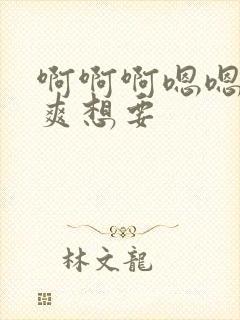 啊啊啊嗯嗯
爽想要
林文龍